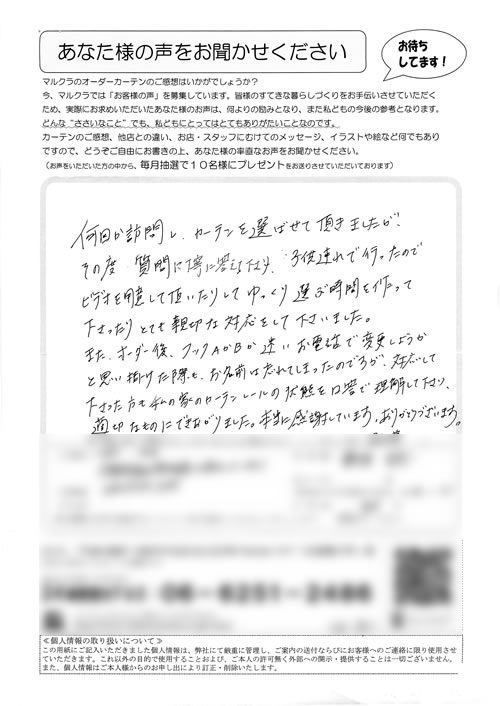 あなた様の声をお聞かせください
お待ち
してます!
マルクラのオーダーカーテンのご感想はいかがでしょうか?
今、マルクラでは「お客様の声」を募集しています。皆様のすてきな暮らしづくりをお手伝いさせていただく
ため、実際にお求めいただいたあなた様のお声は、何よりの励みとなり、また私どもの今後の参考となります。
どんな“ささいなこと”でも、私どもにとってはとてもありがたいことなのです。
カーテンのご感想、他店との違い、お店・スタッフにむけてのメッセージ、イラストや絵など何でもあり
ですので、どうぞご自由にお書きの上、あなた様の率直なお声をお聞かせください。
(お声をいただいた方の中から、毎月抽選で10名様にプレゼントをお送りさせていただいております)
何回か訪問し、カーテンを選ばせて頂きましたが、
その度 質問に丁寧に答えて下さり、子供連れで行ったので
ビデオを用意して頂いたりして ゆっくり 選ぶ時間を作って
下さったり とても 親切な対応をして下さいました。
また、オーダー後、フックAかBか迷い お電話で変更しようか
と思い掛けた際も、お名前は忘れてしまったのですが、対応して
下さった方も 私の家のカーテンレールの状態を口答で理解して下り、
適切なものにできあがりました。本当に感謝しています。ありがとうございます。
06-6251-2486
≪個人情報の取り扱いについて≫
この用紙にご記入いただきました個人情報は、弊社にて厳重に管理し、ご案内の送付ならびにお客様へのご連絡に限り使用させ
ていただきます。これ以外の目的で使用することおよび、ご本人の許可無く外部への開示・提供することは一切ございません。
また、個人情報はご本人様からのお申し出により訂正・削除いたします。